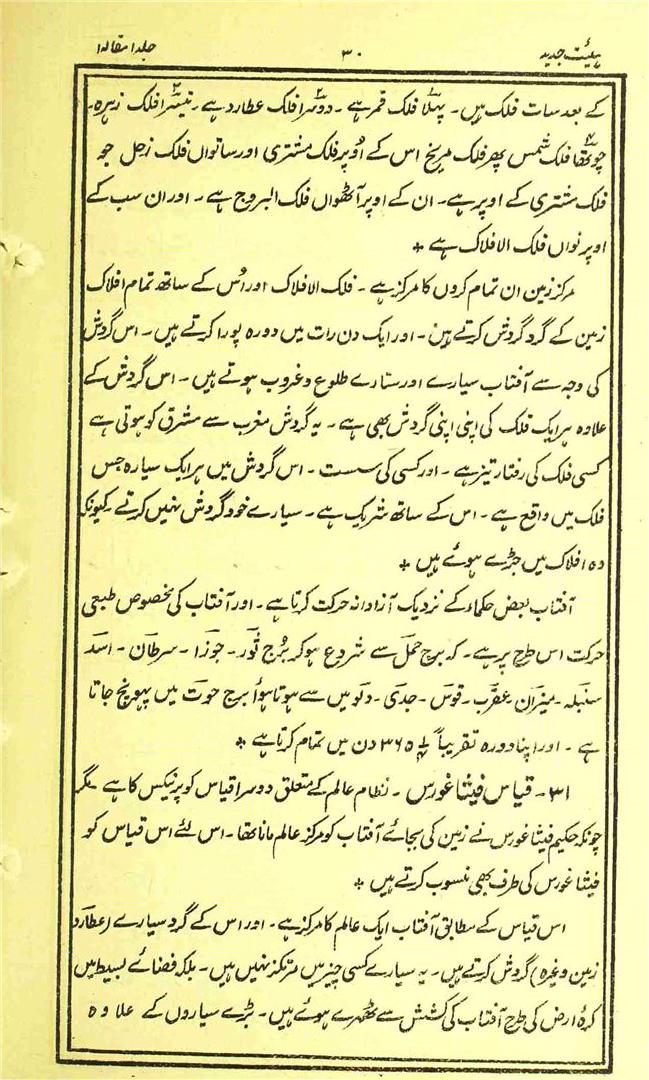 ہیئت جدید ۳۰ جلد۱ مقالہ۱
کے بعد سات فلک ہیں۔ پہلا فلک قمر ہے۔ دوسرا فلک عطارد ہے۔ تیسرا فلک زہرہ۔
چوتھا فلک شمس پھر فلک مریخ اس کے اُوپر فلک مشتری اور ساتواں فلک زحل جو
فلک مشتری کے اوپر ہے۔ ان کے اوپر آٹھواں فلک البروج ہے۔ اور ان سب کے
اوپر نواں فلک الافلاک ہے *
مرکز زمین ان تمام کروں کا مرکز ہے۔ فلک الافلاک اور اُس کے ساتھ تمام افلاک
زمین کے گرد گردش کرتے ہیں۔ اور ایک دن رات میں دورہ پورا کرتے ہیں۔ اس گردش
کی وجہ سے آفتاب سیارے اور ستارے طلوع و غروب ہوتے ہیں۔ اس گردش کے
علاوہ ہر ایک فلک کی اپنی اپنی گردش بھی ہے۔ یہ گردش مغرب سے مشرق کو ہوتی ہے
کسی فلک کی رفتار تیز ہے۔ اور کسی کی سست۔ اس گردش میں ہر ایک سیارہ جس
فلک میں واقع ہے۔ اس کے ساتھ شریک ہے۔ سیارے خود گردش نہیں کرتے۔ کیونکہ
وہ افلاک میں جڑے ہوئے ہیں *
آفتاب بعض حکماء کے نزدیک آزادانہ حرکت کرتا ہے۔ اور آفتاب کی مخصوص طبعی
حرکت اس طرح پر ہے۔ کہ برج حمل سے شروع ہو کر بُرج ثور۔ جوزا۔ سرطان۔ اسد
سنبلہ۔ میزان۔ عقرب۔ قوس۔ جدی۔ دلو میں سے ہوتا ہوا برج حوت میں پہونچ جاتا
ہے۔ اور اپنا دورہ تقریباً ۳۶۵ ۱/۴ دن میں تمام کرتا ہے *
۳۱۔ قیاس فیثاغورس۔ نظام عالم کے متعلق دوسرا قیاس کوپرنیکس کا ہے۔ مگر
چونکہ حکیم فیثاغورس نے زمین کی بجائے آفتاب کو مرکز عالم مانا تھا۔ اس لئے اس قیاس کو
فیثاغورس کی طرف بھی منسوب کرتے ہیں *
اس قیاس کے مطابق آفتاب ایک عالم کا مرکز ہے۔ اور اس کے گرد سیارے (عطارد
زمین وغیرہ) گردش کرتے ہیں۔ یہ سیارے کسی چیز میں مرتکز نہیں ہیں۔ بلکہ فضائے بسیط میں
کرۂ ارض کی طرح آفتاب کی کشش سے ٹھہرے ہوئے ہیں۔ بڑے سیاروں کے علاوہ